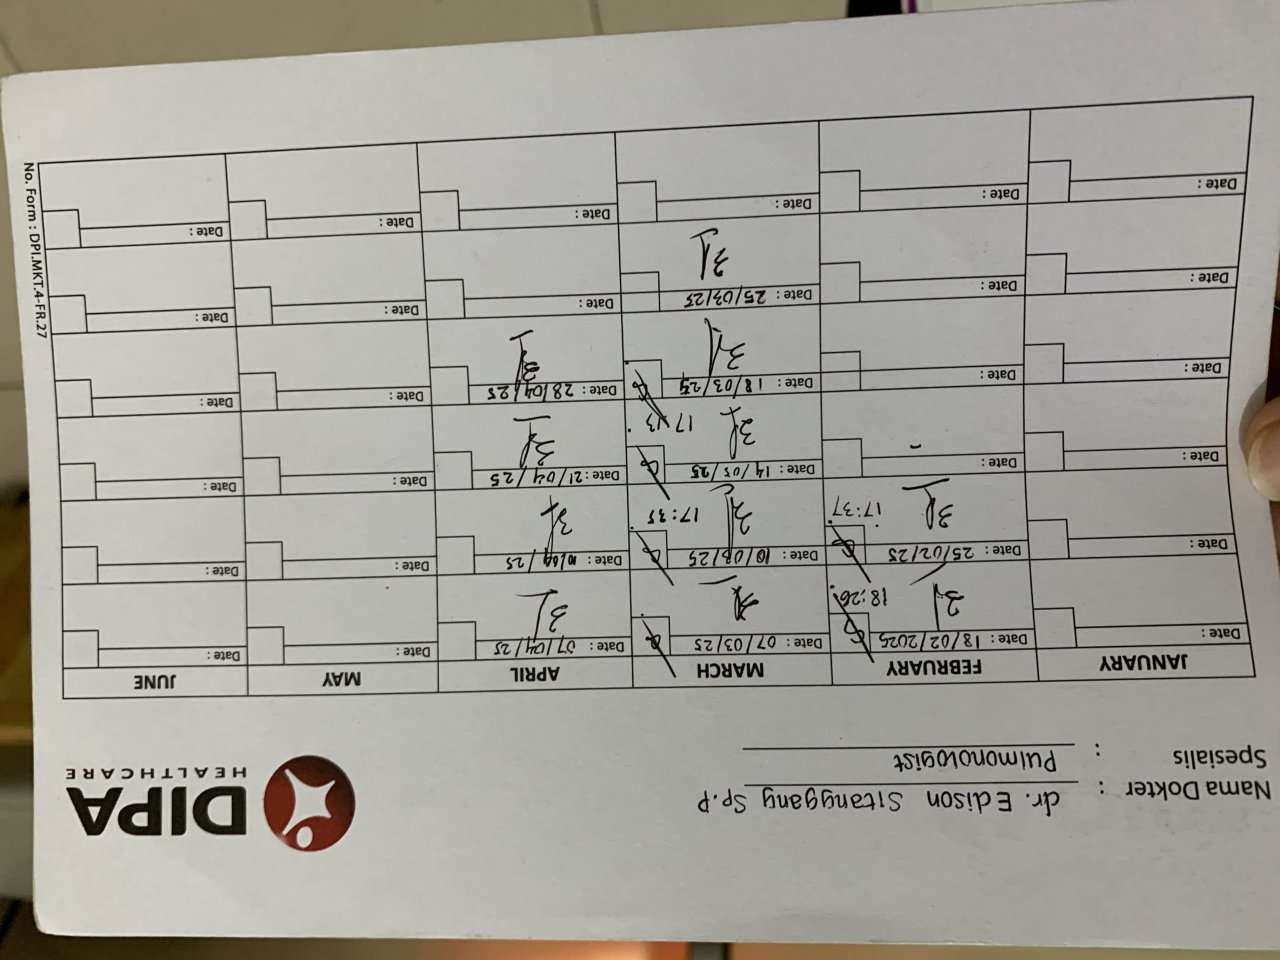 Nama Dokter : dr. Edison Sitanggang Sp.P
Spesialis : Pulmonologist
DIPA
HEALTHCARE
JANUARY FEBRUARY MARCH APRIL MAY JUNE
Date: Date: 18/02/2025 Date: 07/03/25 Date: 07/04/25 Date: Date:
18:26
Date: Date: 25/02/25 Date: 10/03/25 Date: 10/04/25 Date: Date:
17:37 17:35
Date: Date: Date: 14/03/25 Date: 21/04/25 Date: Date:
- 17:13
Date: Date: Date: 18/03/25 Date: 28/04/25 Date: Date:
Date: Date: Date: 25/03/25 Date: Date: Date:
Date: Date: Date: Date: Date: Date:
No. Form : DPI.MKT.4-FR.27